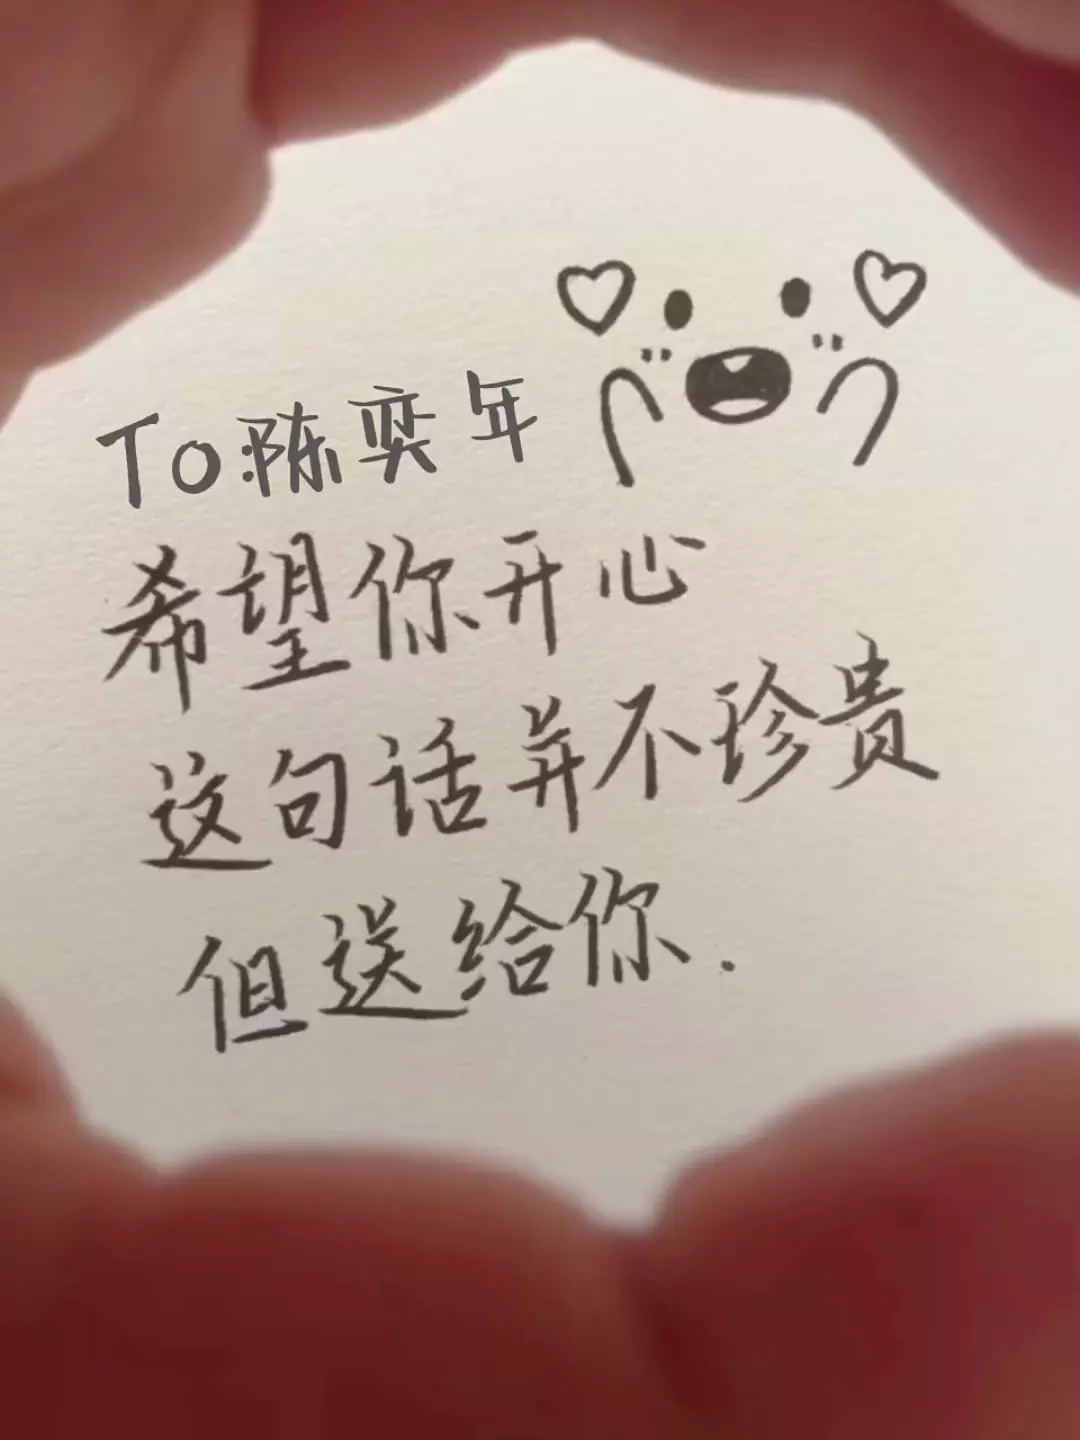 To:陈奕年
希望你开心
这句话并不珍贵
但送给你.